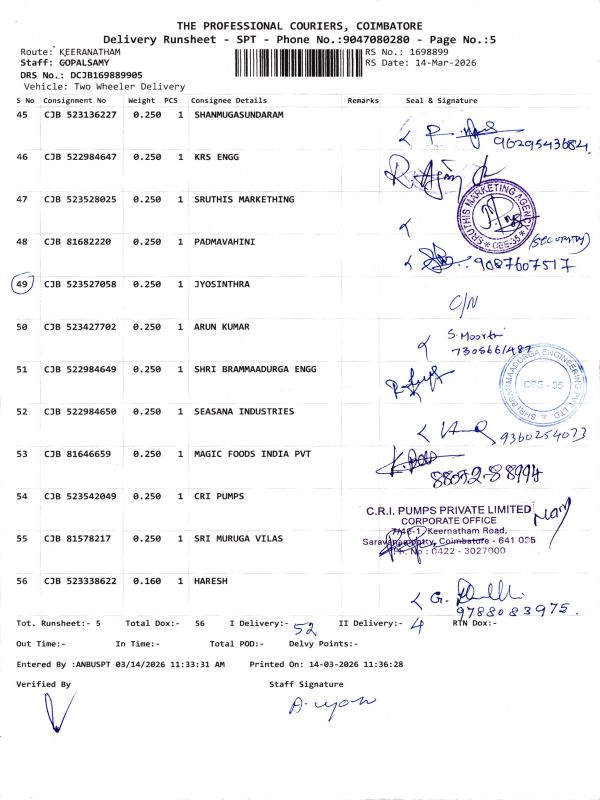 THE PROFESSIONAL COURIERS, COIMBATORE
Delivery Runsheet - SPT - Phone No.:9047080280 - Page No.:5
Route: KEERANATHAM RS No.: 1698899
Staff: GOPALSAMY RS Date: 14-Mar-2026
DRS No.: DCJB169889905
Vehicle: Two Wheeler Delivery
S No Consignment No Weight PCS Consignee Details Remarks Seal & Signature
45 CJB 523136227 0.250 1 SHANMUGASUNDARAM
9629543684
46 CJB 522984647 0.250 1 KRS ENGG
47 CJB 523528025 0.250 1 SRUTHIS MARKETHING
SRUTHIS MARKETING AGENCY
CBE-35
48 CJB 81682220 0.250 1 PADMAVAHINI
(SECURITY)
9087607517
49 CJB 523527058 0.250 1 JYOSINTHRA
C/N
50 CJB 523427702 0.250 1 ARUN KUMAR
S. Moorthi
7305661487
51 CJB 522984649 0.250 1 SHRI BRAMMAADURGA ENGG
SHRI BRAMMAADURGA ENGINEERING PVT. LTD.
CBE - 35
52 CJB 522984650 0.250 1 SEASANA INDUSTRIES
9360254073
53 CJB 81646659 0.250 1 MAGIC FOODS INDIA PVT
88052-88994
54 CJB 523542049 0.250 1 CRI PUMPS
C.R.I. PUMPS PRIVATE LIMITED
CORPORATE OFFICE
Keernatham Road,
Saravanampatty, Coimbatore - 641 035
Ph. No : 0422 - 3027000
55 CJB 81578217 0.250 1 SRI MURUGA VILAS
56 CJB 523338622 0.160 1 HARESH
9788083975.
Tot. Runsheet:- 5 Total Dox:- 56 I Delivery:- 52 II Delivery:- 4 RTN Dox:-
Out Time:- In Time:- Total POD:- Delvy Points:-
Entered By :ANBUSPT 03/14/2026 11:33:31 AM Printed On: 14-03-2026 11:36:28
Verified By Staff Signature